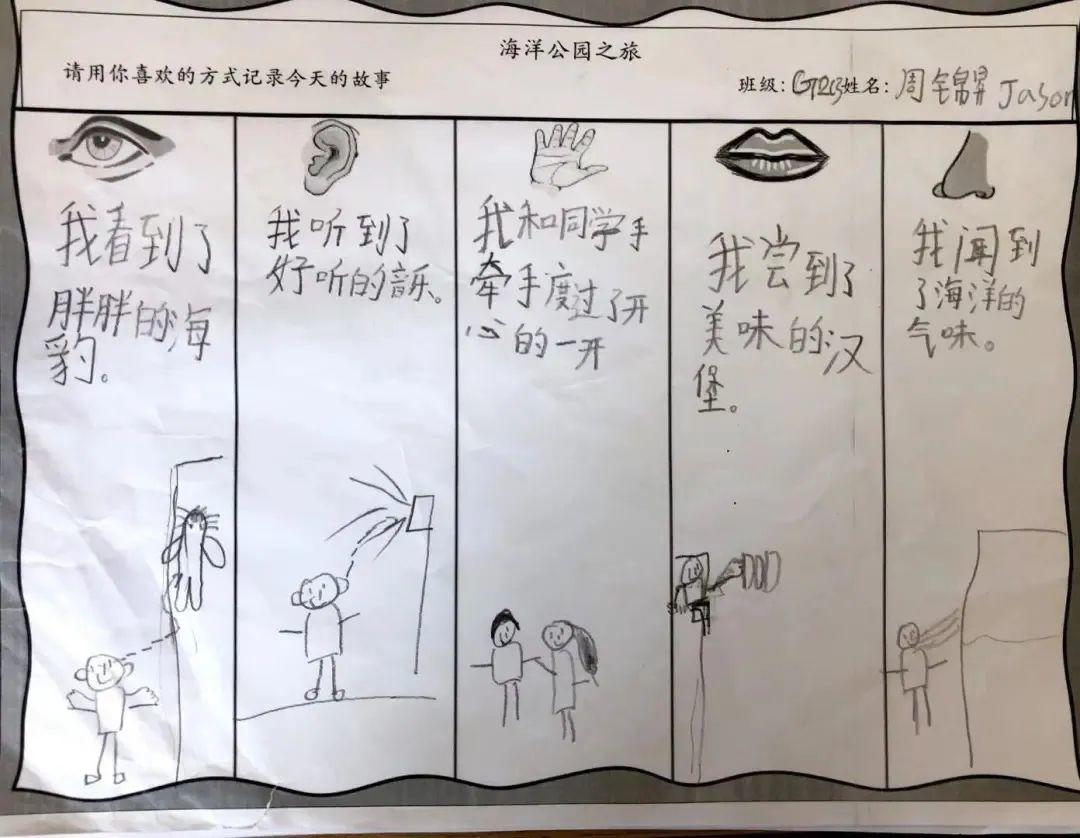 海洋公园之旅
请用你喜欢的方式记录今天的故事
班级: 姓名: 周锦昇 Jason
我看到了
胖胖的海
豹。
我听到了
好听的音乐。
我和同学手
牵手度过了开
心的一开
我尝到了
美味的汉
堡。
我闻到
了海洋的
气味。